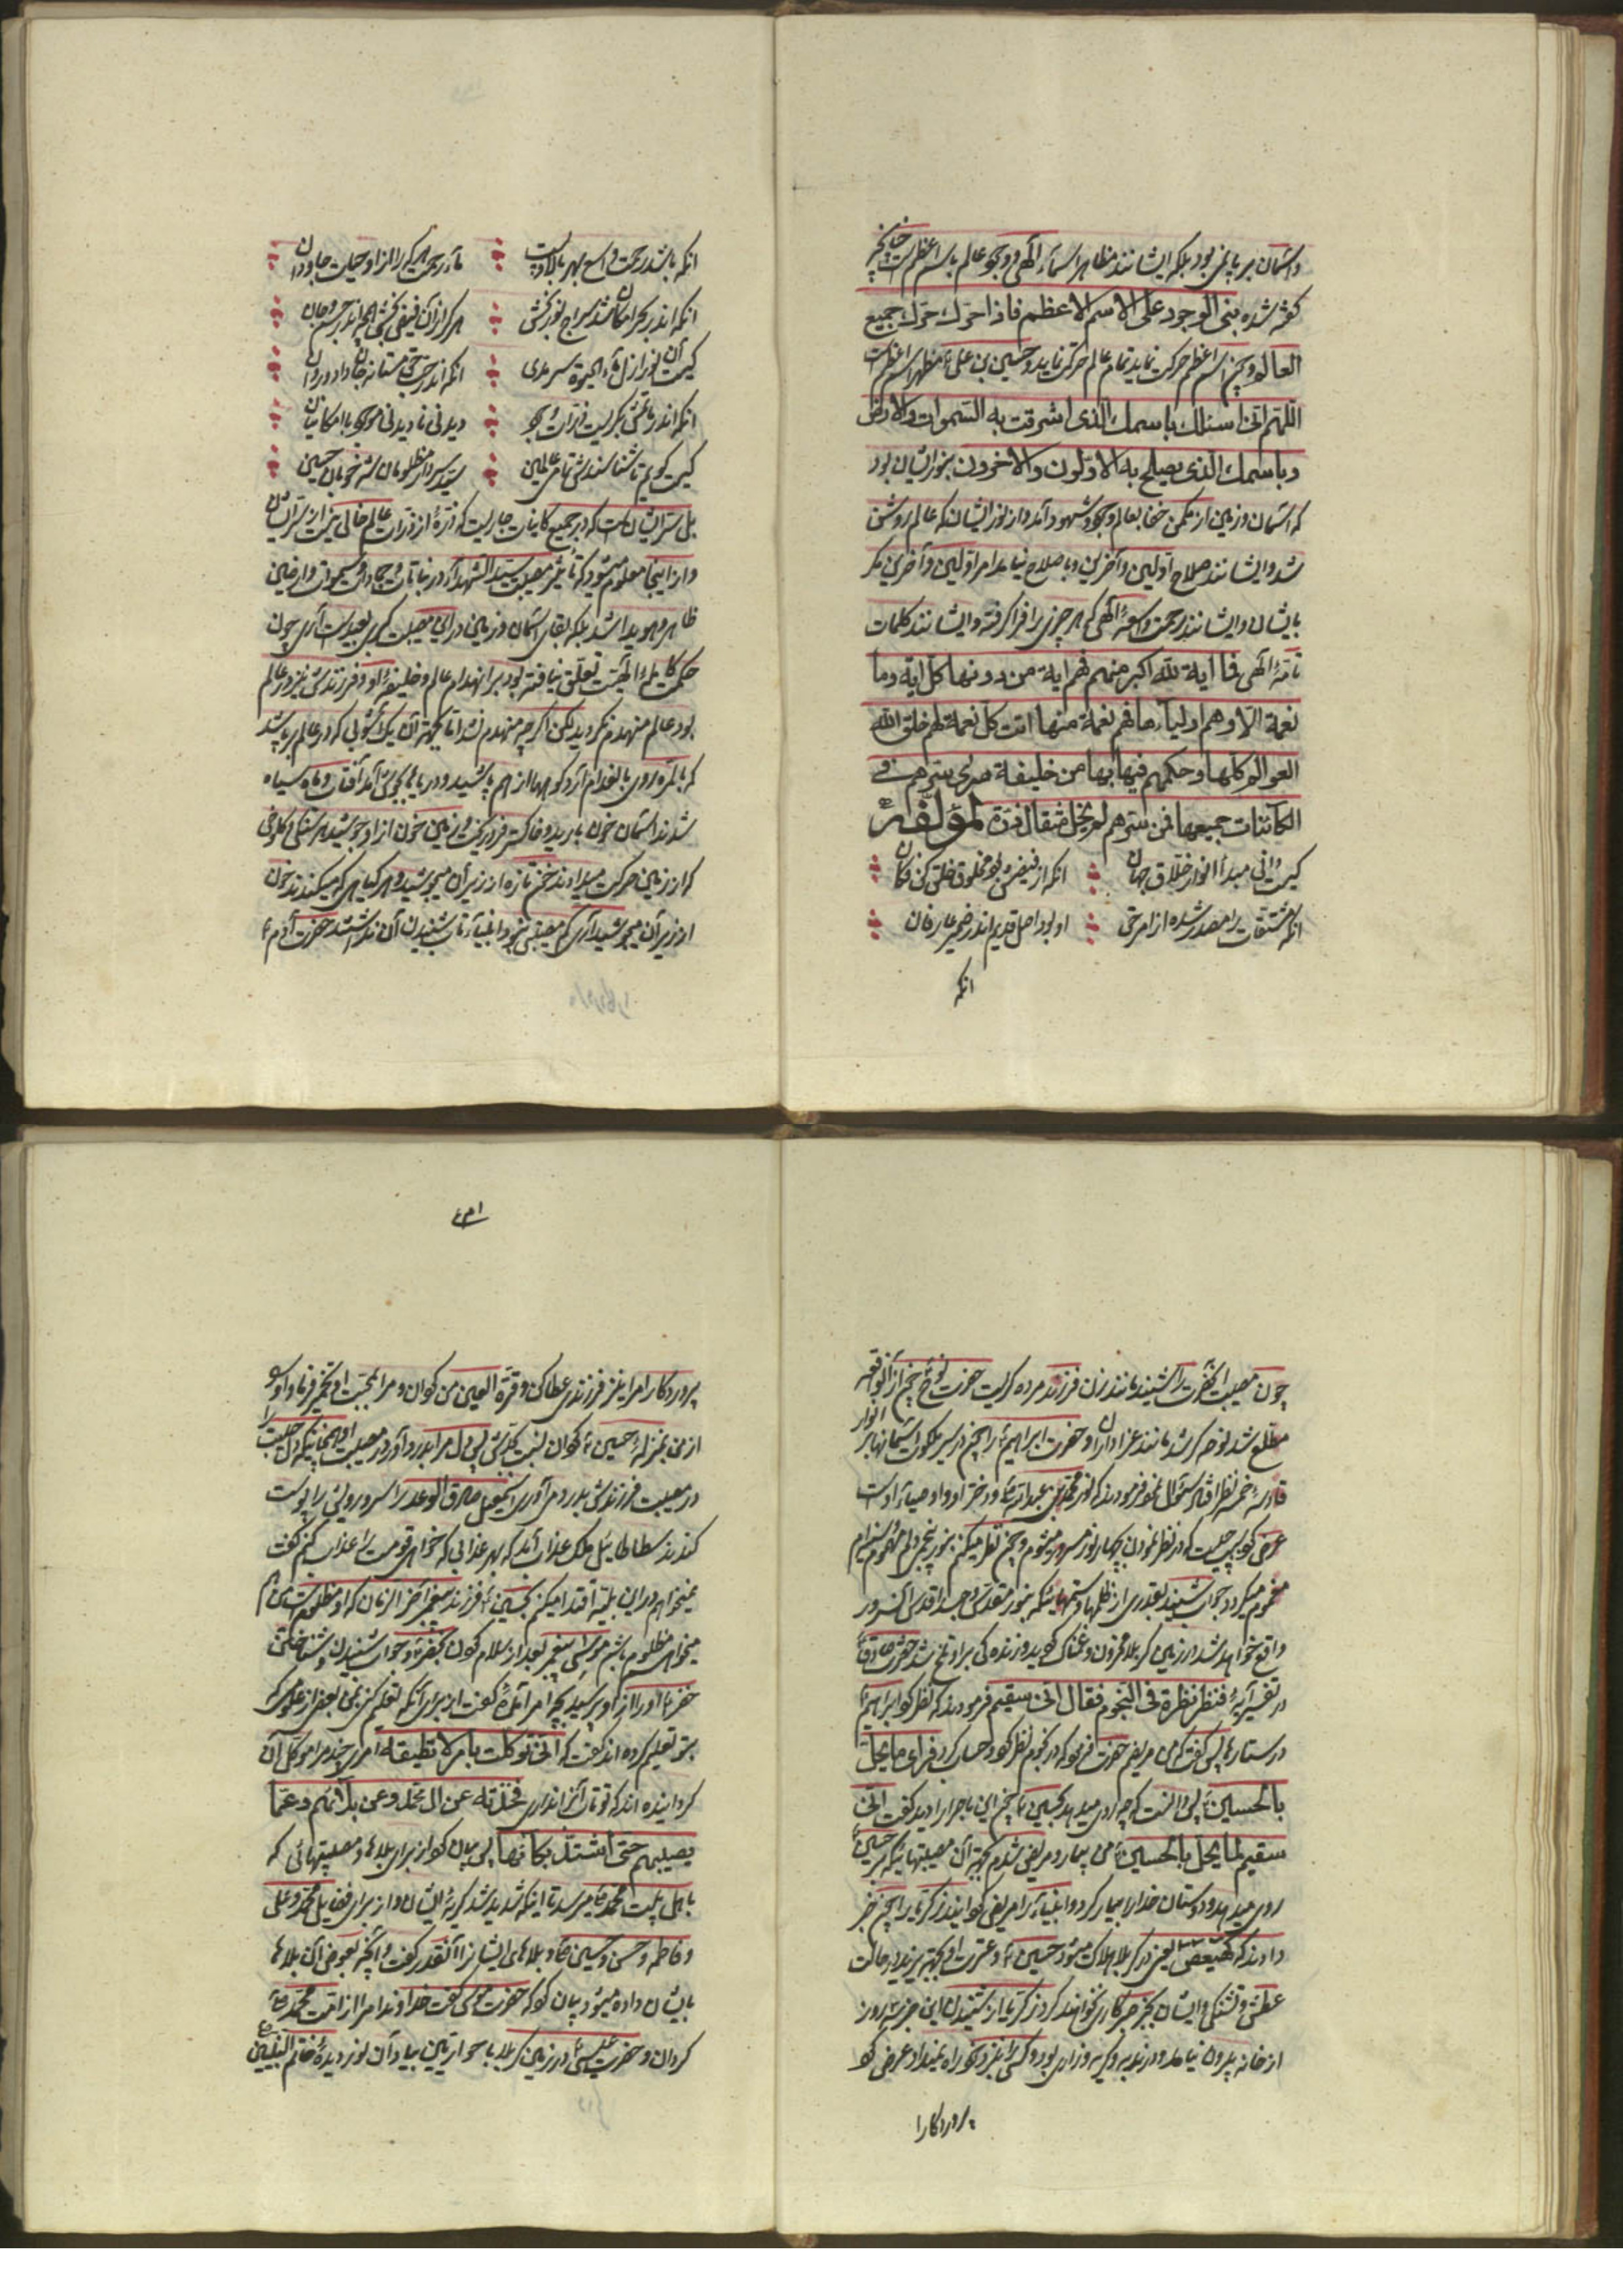 و آسمان برپا نمی بود بلکه ایشانند مظاهر اسماء الهی و وجود عالم باسم اعظم است چنانچه
گفته شده بنی الوجود علی الاسم الاعظم فاذا حرّك حرّك جمیع
العالم و چون اسم اعظم حرکت نماید تمام عالم حرکت نماید و حسین بن علی ع مظهر اسم اعظم است
اللّهم انی اسئلك باسمك الذی اشرقت به السّموات والارض
و باسمك الذی یصلح به الاوّلون والاخرون بنور ایشان بود
که آسمان و زمین از مکمن خفا بعالم وجود و شهود آمد و از نور ایشان که عالم روشن
شد و ایشانند صلاح اولین و آخرین و باصلاح نیامد امر اولین و آخرین مگر
بایشان و ایشانند رحمت واسعهٔ الهی که هر چیزی را فرا گرفته و ایشانند کلمات
تامّهٔ الهی فما ایة للّه اکبر منهم فهم ایة من دونها کل ایة وما
نعمة الّا وهم اولیآءها فهم نعمة منها اتت کل نعمة لهم خلق اللّه
العوالم کلها و حکمهم فیها بها من خلیفة سری سرهم فی
الکائنات جمیعها فمن سرهم لم یخل مثقال ذرّة لمؤلّفه
کیست آنی مبدأ انوار خلاق جهان انکه از فیضش بود مخلوق خلق کن فکان
انکه مشتقات را مصدر شده از امر حق او بود اصل قدیم اندر ضمیر عارفان
انکه
انکه باشد رحمت واسع بهر بالا و پست ماء رحمت هر که را زاو حیات جاودان
انکه اندر بحر امکان شد سراج نوربخش هر کرا زان فیض بخشی همچو اندر جسم جان
کیست آن نور ازل ماء الحیوة سرمدی انکه اندر راه حق مستانه جان داد و روان
انکه اندر ماتمش بگریست ذرات وجود دیدنی نادیدنی موجود با امکانیان
کیست گویم تا شناسندش تمام عالمین سید و سردار مظلومان شه خوبان حسین
بلی سرّ ایشان است که در جمیع کاینات جاریست که ذرّهٔ از ذرات عالم خالی نیست از سرّ ایشان
و از اینجا معلوم میشود که تأثیر مصیبت سیّد الشهدآء در نباتات و جمادات و سموات و ارضین
ظاهر و هویدا شد بلکه بقای آسمان و زمین در این مصیبت کبری بعید است آری چون
حکمت کاملهٔ الهیّت تعلّق نیافته بود بر انهدام عالم و خلیفهٔ او و فرزندش نیز در عالم
بود عالم منهدم نگردید لیکن اگر چه منهدم نشد اما بجهة آن یک آشوبی که در عالم برپا شد
که بالمره روی بانهدام آرد کوهها از هم پاشید و دریاها بجوش آمد آفتاب و ماه سیاه
شدند آسمان خون بارید و خاکستر فرو ریخت و زمین خون از او جوشید هر سنگی و کلوخی
که از زمین حرکت میدادند خون تازه از زیر آن میجوشید و هر گیاهی که میکندند خون
از زیر آن میجوشید آری کم مصیبتی نبود انبیاء تاب شنیدن آن نداشتند حضرت آدم ع
چون مصیبت انحضرت را شنید مانند زن فرزند مرده گریست حضرت نوح ع چون از آن واقعه
مطّلع شد نوحه کر شد مانند عزاداران او حضرت ابراهیم ع را چون در سیر ملکوت آسمانها بر انوار
قادسهٔ خمسه نظر افتاد سئوال نمود فرمودند که نور محمد بن عبد اللّه و دختر او و اوصیاء اوست
عرض کرد چیست که در نظر نمودن بچهار نور مسرور میشوم و چون نظر میکنم بنور پنجم دلم مهموم و سینه ام
مغموم میگردد جواب شنید بقدری از ظلمها و ستمها بنکه بنور مقدس و جسد اقدس آن سرور
واقع خواهد شد در زمین کربلا محزون و غمناک گردید و زندگی بر او تلخ شد حضرت صادق ع
در تفسیر آیهٔ فنظر نظرة فی النجوم فقال انی سقیم فرمودند که نظر کرد ابراهیم ع
در ستارها پس گفت که من مریضم حضرت فرمود که در نجوم نظر کرد و حساب کرد فرای ما یحل
بالحسین ع پس دانست که چه روی میدهد بحسین ع چون این ماجرا را دید گفت انی
سقیم لما یحل بالحسین ع من بیمار و مریض شدم بجهة آن مصیبتهاییکه بر حسین ع
روی میدهد و دوستان خدا را بیمار کرد و انبیاء را مریض کرد انیدند زکریا را چون خبر
دادند که کهیعص یعنی در کربلا هلاک میشود حسین ع و عترت او بجهة یزید در حالت
عطش و تشنگی و ایشان بجز صبر کاری نخواهند کرد زکریا از شنیدن این خبر سه روز
از خانه بیرون نیامد و در ندبه و گریه و زاری بود و کسی را بنزد خود راه نمیداد و عرض کرد
پروردکارا
۱۵۲
پروردکارا مرا نیز فرزندی عطا کن و قرّة العین من گردان و مرا بمحبت او مفتخر فرما و او را
از من بمنزلهٔ حسین ع گردان نسبت بجدش پس دل مرا بدرد آور در مصیبت او همچنانیکه دل حبیبت را
در مصیبت فرزندش بدرد می آوری اسمعیل صادق الوعد را سر و روی را پوست
کندند سطاطائیل ملک عذاب آمد که بهر عذابی که خواهی قومت را عذاب کنم گفت
نمیخواهم در این بلیّه اقتدا میکنم بحسین ع فرزند پیغمبر آخر الزمان که او مظلوم است من هم
میخواهم مظلوم باشم موسی پیغمبر بعد از سلام کردن بخضر و جواب شنیدن و شناختن
خضر ع او را از او پرسید بچه امر آمدهٔ گفت از برای آنکه تعلیم کنی بمن بعض از علومی که
بتو تعلیم کرده اند گفت که انی توکلت بامر لا تطیقه امری چند مرا موکل آن
گردانیده اند که تو تاب آنرا نداری فحدثه عن ال محمّد و عن بلائهم و عمّا
یصیبهم حتی اشتدّ بکائهما پس بیان کرد از برای بلاها و مصیبتهائی که
باهل بیت محمد ص میرسد تا اینکه شدید شد گریهٔ ایشان و از برای فضایل محمد و علی
و فاطمه و حسن و حسین ع و بلاهای ایشانرا آنقدر گفت و آنچه بعوض آن بلاها
بایشان داده میشود بیان کرد که حضرت موسی گفت خداوندا مرا از امّت محمّد ص
گردان و حضرت عیسی ع در زمین کربلا با حواریین بیاد آن نور دیدهٔ خاتم النبیین